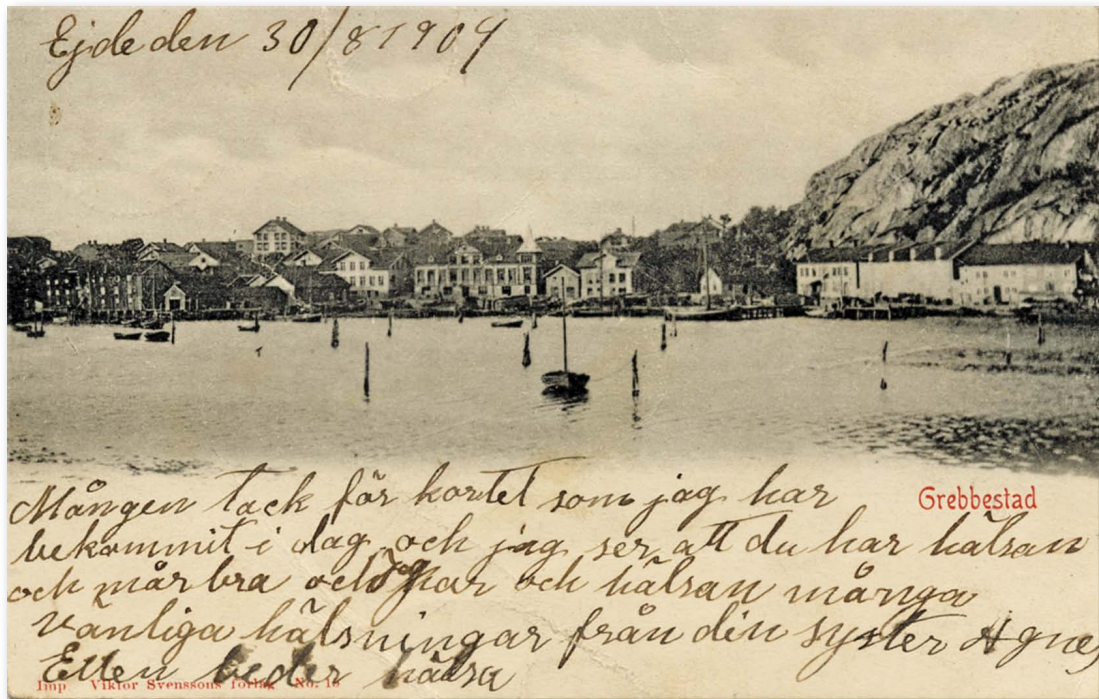 Ejde den 30/8 1904
Mången tack för kortet som jag har
Grebbestad
bekommit i dag och jag ser att du har hälsan
och mår bra och har och hälsan många
vänliga hälsningar från din syster Agnes
Ellen beder hälsa
Imp Viktor Svenssons förlag No. 18